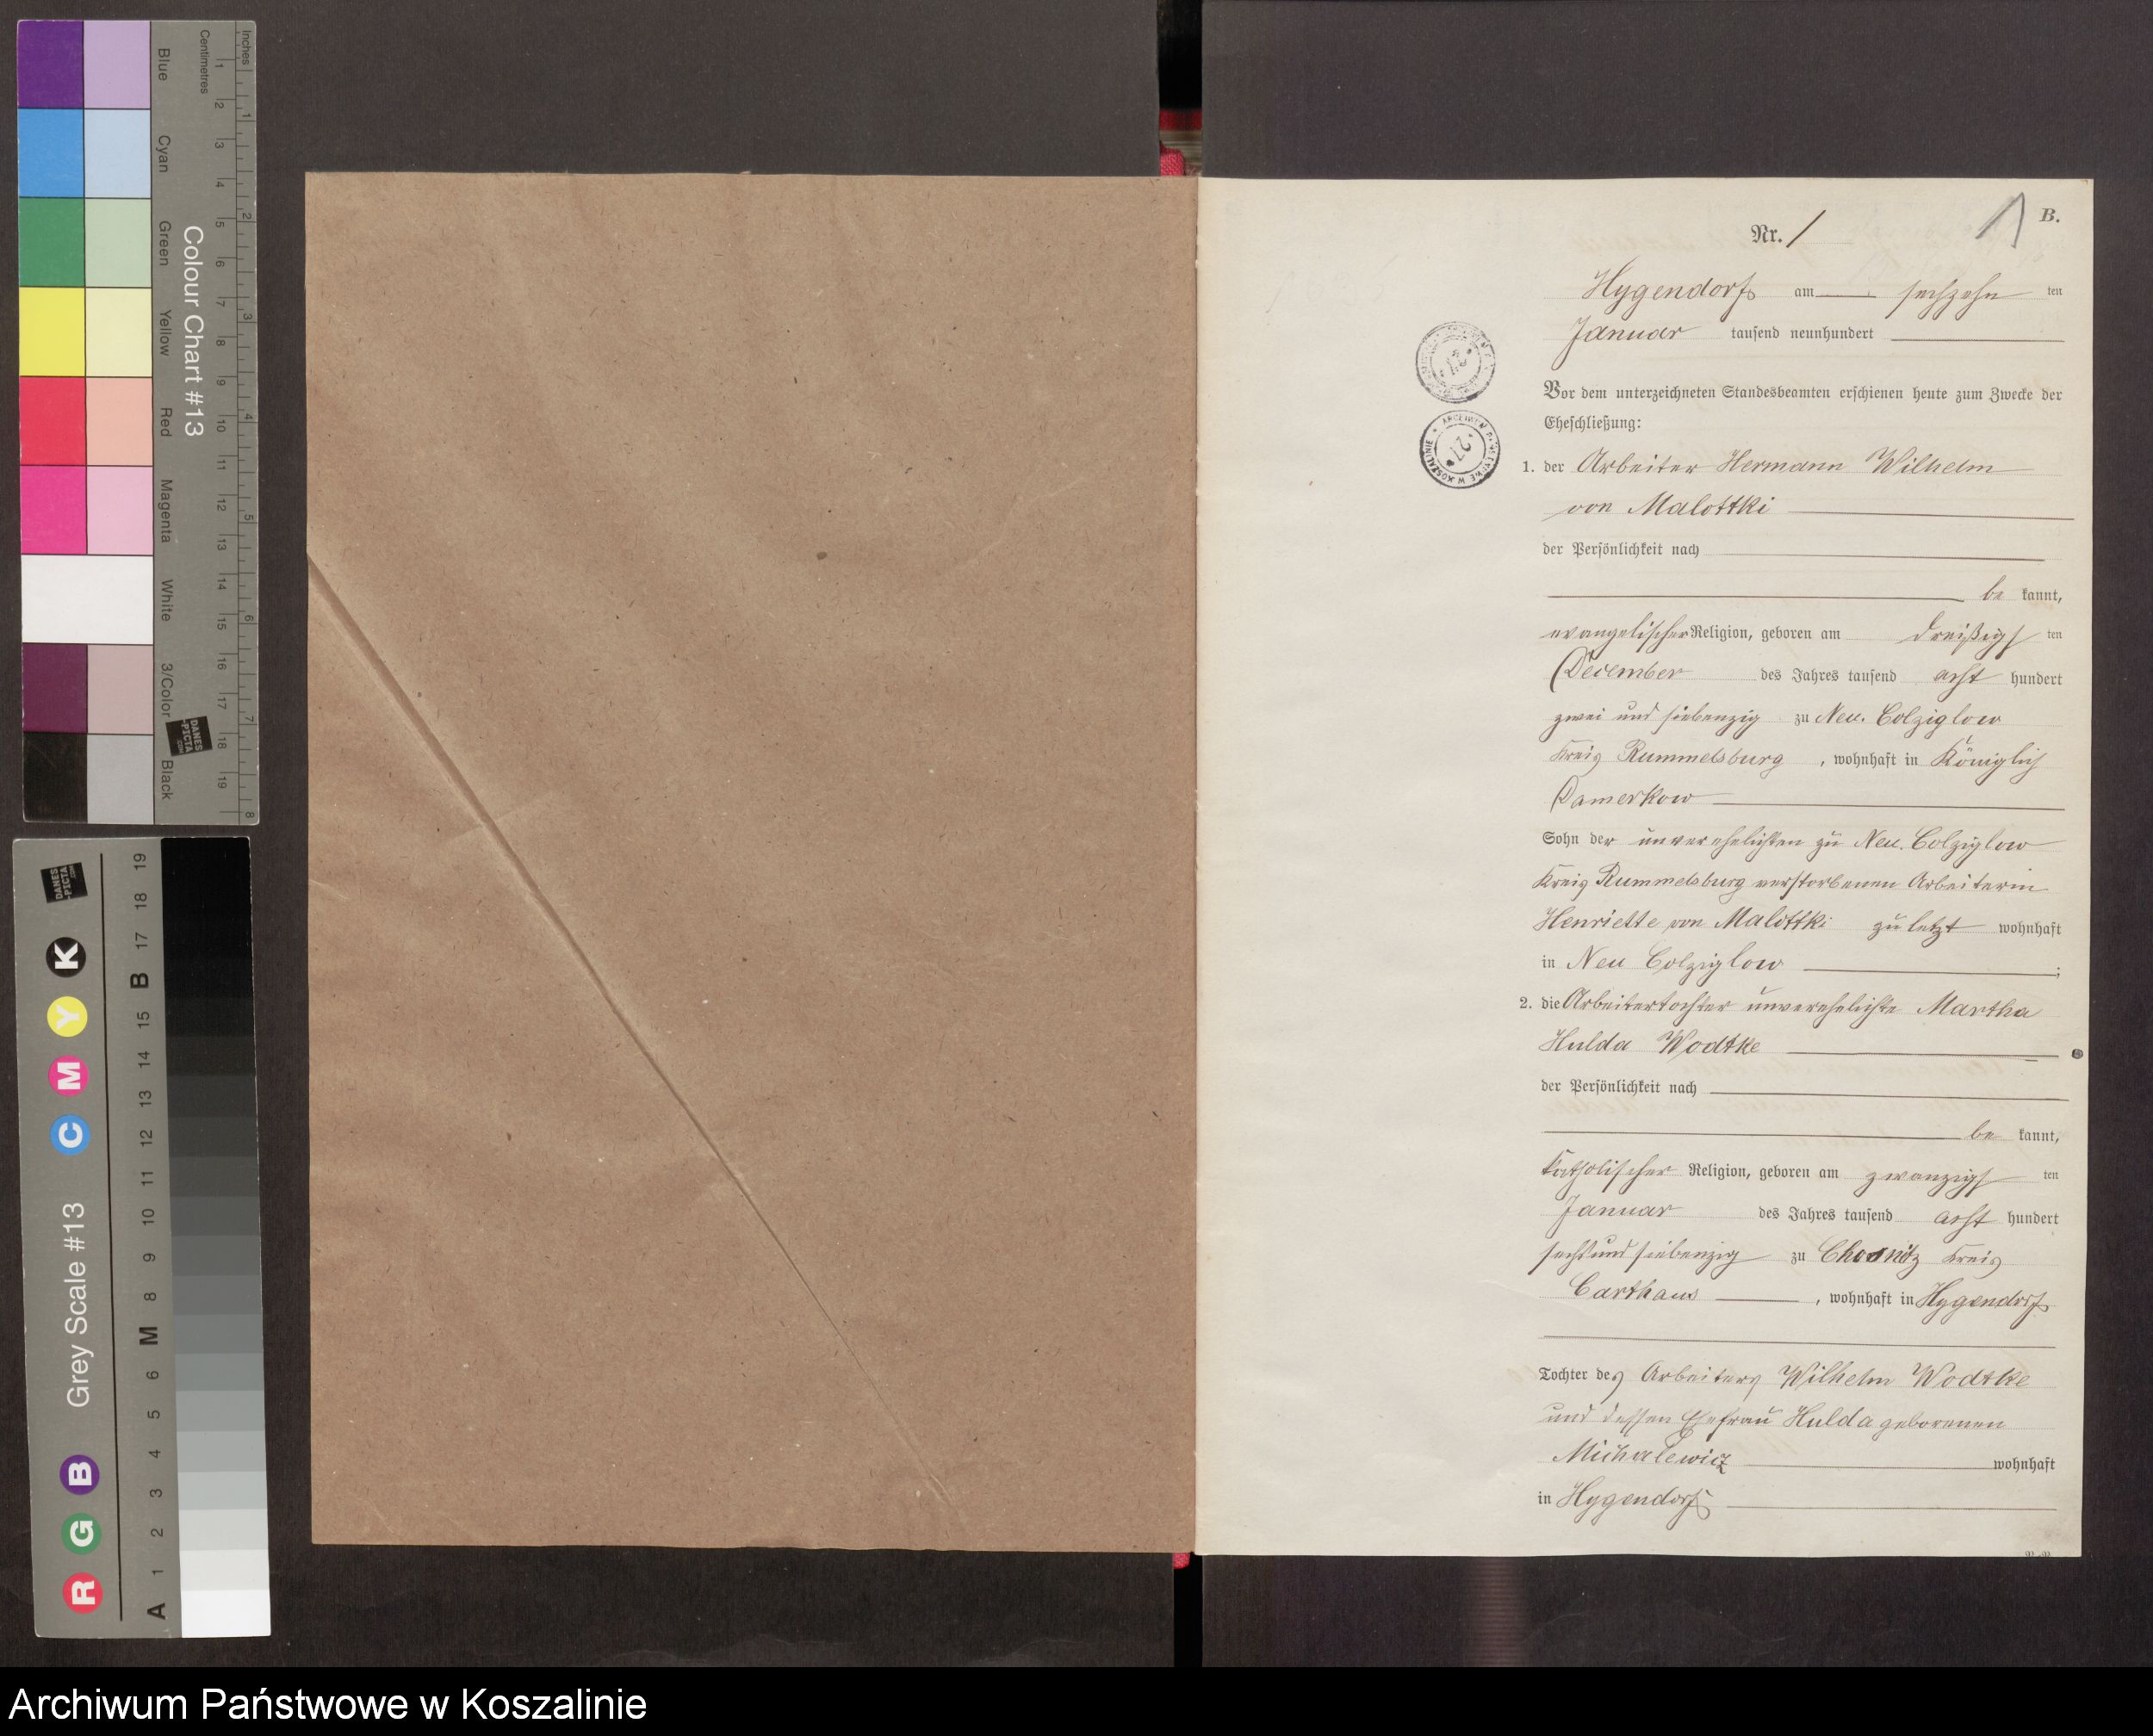 Inches
Centimetres
1 2 3 4 5 6 7 8
1 2 3 4 5 6 7 8 9 10 11 12 13 14 15 16 17 18 19
Colour Chart #13
Blue
Cyan
Green
Yellow
Red
Magenta
White
3/Color
Black
DANES
-PICTA
.COM
Grey Scale #13
R G B C M Y K
A 1 2 3 4 5 6 M 8 9 10 11 12 13 14 15 B 17 18 19
DANES
-PICTA
.COM
B.
1
Nr. 1
Hygendorf am sechzehn ten
Januar tausend neunhundert
Vor dem unterzeichneten Standesbeamten erschienen heute zum Zwecke der
Eheschließung:
1. der Arbeiter Hermann Wilhelm
von Malottki
der Persönlichkeit nach
be kannt,
evangelischer Religion, geboren am dreißigs ten
December des Jahres tausend acht hundert
zwei und siebenzig zu Neu. Colziglow
Kreis Rummelsburg, wohnhaft in Königlich
Damerkow
Sohn der unverehelichten zu Neu. Colziglow
Kreis Rummelsburg verstorbenen Arbeiterin
Henriette von Malottki zuletzt wohnhaft
in Neu Colziglow ;
2. die Arbeitertochter unverehelichte Martha
Hulda Wodtke
der Persönlichkeit nach
be kannt,
katholischer Religion, geboren am zwanzigs ten
Januar des Jahres tausend acht hundert
sechs und siebenzig zu Chosnitz Kreis
Carthaus, wohnhaft in Hygendorf
Tochter des Arbeiters Wilhelm Wodtke
und dessen Ehefrau Hulda geborenen
Michalewicz wohnhaft
in Hygendorf
Archiwum Państwowe w Koszalinie